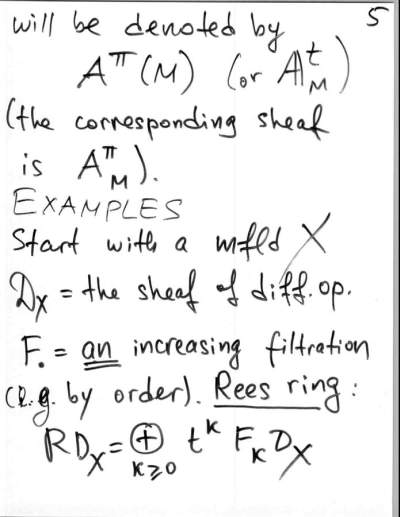 5
will be denoted by
A^π(M) (or A^t_M)
(the corresponding sheaf
is A^π_M).
EXAMPLES
Start with a mfld X
D_X = the sheaf of diff. op.
F. = an increasing filtration
(e.g. by order). Rees ring:
RD_X = ⊕_{k≥0} t^k F_k D_X